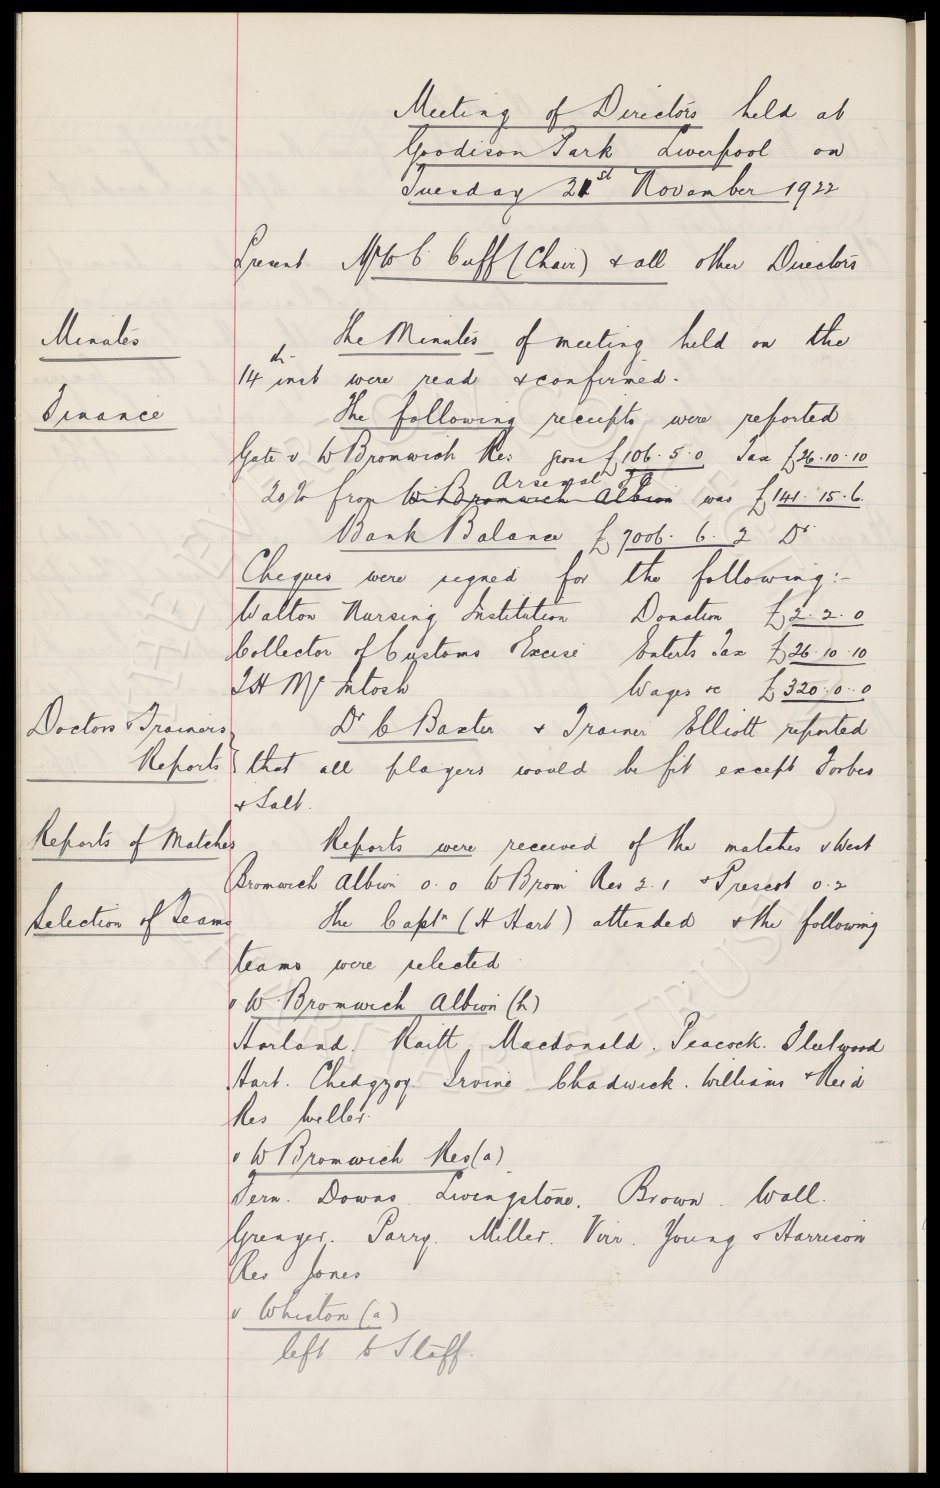 Meeting of Directors held at
Goodison Park Liverpool on
Tuesday 21st November 1922
Present Mr W C Cuff (Chair) & all other Directors
Minutes
The Minutes of meeting held on the
14th inst were read & confirmed.
Finance
The following receipts were reported
Gate v W Bromwich Res gross £106. 5. 0 Tax £26. 10. 10
Arsenal FC
20% from W. Bromwich Albion was £141. 15. 6.
Bank Balance £7006. 6. 2 Dr
Cheques were signed for the following:-
Walton Nursing Institution Donation £2. 2. 0
Collector of Customs Excise Enterts Tax £26. 10. 10
T H Mc Intosh Wages &c £320. 0. 0
Doctors & Trainers
Dr C Baxter & Trainer Elliott reported
Reports
that all players would be fit except Forbes
& Salt.
Reports of Matches
Reports were received of the matches v West
Bromwich Albion 0. 0 W Brom Res 2. 1 & Prescot 0. 2
Selection of Teams
The Captn (H Hart) attended & the following
teams were selected
v W. Bromwich Albion (h)
Harland. Raitt Macdonald. Peacock. Fleetwood
Hart. Chedgzoy. Irvine. Chadwick. Williams & Reid
Res Weller.
v W Bromwich Res (a)
Fern. Downs. Livingstone. Brown. Wall.
Grenyer. Parry. Miller. Virr. Young & Harrison
Res Jones
v Whiston (a)
left to Staff.